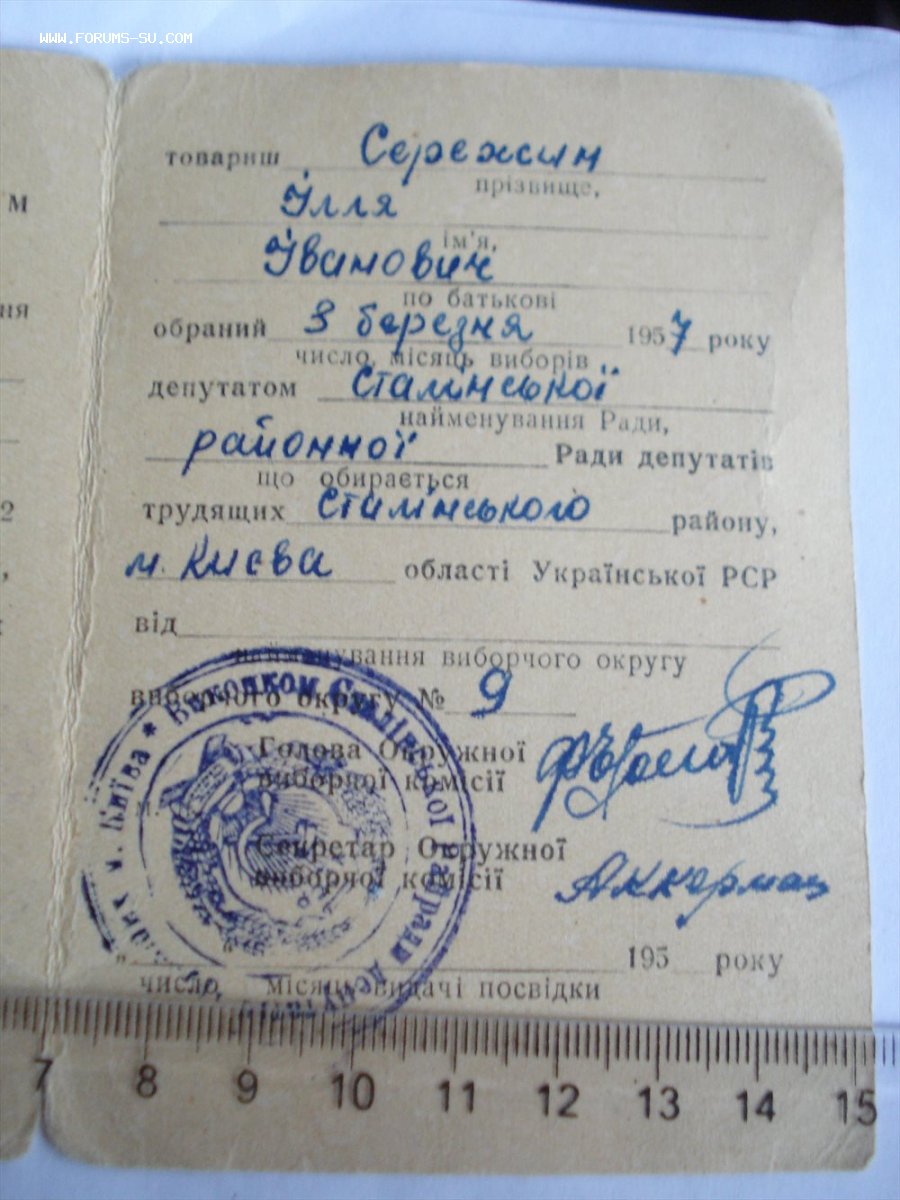 WWW.FORUMS-SU.COM
товариш Сережин
прізвище,
Ілля
ім'я,
Іванович
по батькові
обраний 3 березня 1957 року
число, місяць виборів
депутатом Сталінської
найменування Ради,
районної Ради депутатів
що обирається
трудящих Сталінського району,
м. Києва області Української РСР
від
найменування виборчого округу
виборчого округу № 9
Голова Окружної
виборчої комісії
Секретар Окружної
виборчої комісії
Аккерман
195 року
число, місяць видачі посвідки
м
ня
2
,
* Виконком Сталінської райради депу
м. Київа
7 8 9 10 11 12 13 14 15